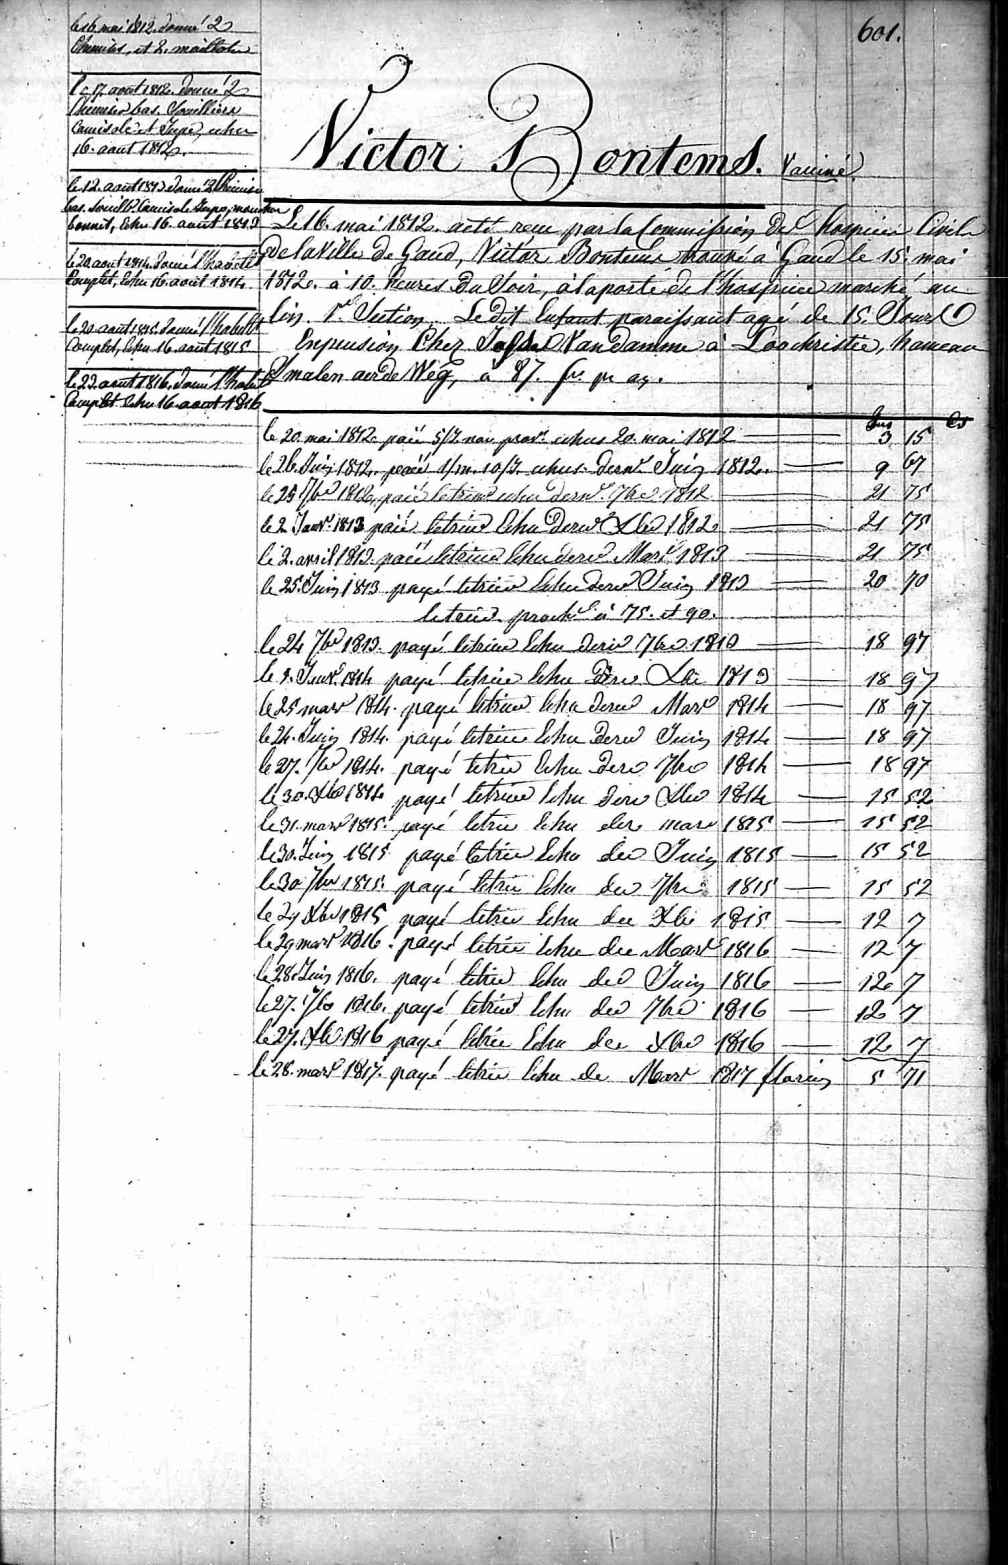 601.
le 16 mai 1812. donné 2
Chemises, et 2. maillots
le 17 aout 1812. donné 2
Chemises bas. Souilliers
Camisole et Jupe, echu
16. aout 1812.
le 12. août 1813 donné 2 Chemises
bas. Souill. Camisole Jupe, mouchoir
bonnet, Echu 16. août 1813
le 20 août 1814. donné l'habillt
Complet, Echu 16. août 1814.
le 20. août 1815. donné l'habillt
Complet, Echu 16. août 1815
le 22. août 1816. donné l'habillt
Complet. Echu 16. aout 1816
Victor Bontems. Vacciné
Le 16. mai 1812. acté recu par la Commission des hospices Civils
de la Ville de Gand, Victor Bontems trouvé à Gand le 15. mai
1812. à 10. heures du Soir, à la porte de l'hospice marché au
lin. 1re Section. Le dit Enfant paraissant agé de 15. Jours
En pension Chez Van Damme à Loochristie, hameau
Smalen aerde Weg, à 87. fr. pr an.
frs Cs
le 20. mai 1812. paié 5/J. echus 20. mai 1812 3 15
le 26. Juin 1812. paié 1/m. 10/J. echus dernr Juin 1812. 9 67
le 25 7bre 1812. paié le trime echu dernr 7bre 1812 21 75
le 2. Janvr 1813 paié le trime Echu dernr Xbre 1812 21 75
le 2. avril 1813. paié le trime Echu dernr Mars 1813 21 75
le 25. Juin 1813 payé le trime Echu dernr Juin 1813 20 70
le trime proche à 75. et 90.
le 24 7bre 1813. payé le trime Echu dernr 7bre 1813 18 97
le 2. Janvr 1814 payé le trime Echu dernr Xbre 1813 18 97
le 25 mars 1814. payé le trime Echu dernr Mars 1814 18 97
le 24. Juin 1814. payé le trime Echu dernr Juin 1814 18 97
le 27. 7bre 1814. payé le trime Echu dernr 7bre 1814 18 97
le 30. Xbre 1814 payé le trime Echu dernr Xbre 1814 15 52
le 31. mars 1815. payé le trime Echu der mars 1815 15 52
le 30. Juin 1815 payé le trime Echu der Juin 1815 15 52
le 30 7bre 1815. payé le trime Echu der 7bre 1815 15 52
le 29 Xbre 1815 payé le trime Echu der Xbre 1815 12 7
le 29 mars 1816. payé le trime Echu der Mars 1816 12 7
le 28. Juin 1816. payé le trime Echu der Juin 1816 12 7
le 27. 7bre 1816. payé le trime Echu der 7bre 1816 12 7
le 27. Xbre 1816 payé le trime Echu der Xbre 1816 12 7
le 28. mars 1817. payé le trime Echu de Mars 1817 florins 5 71